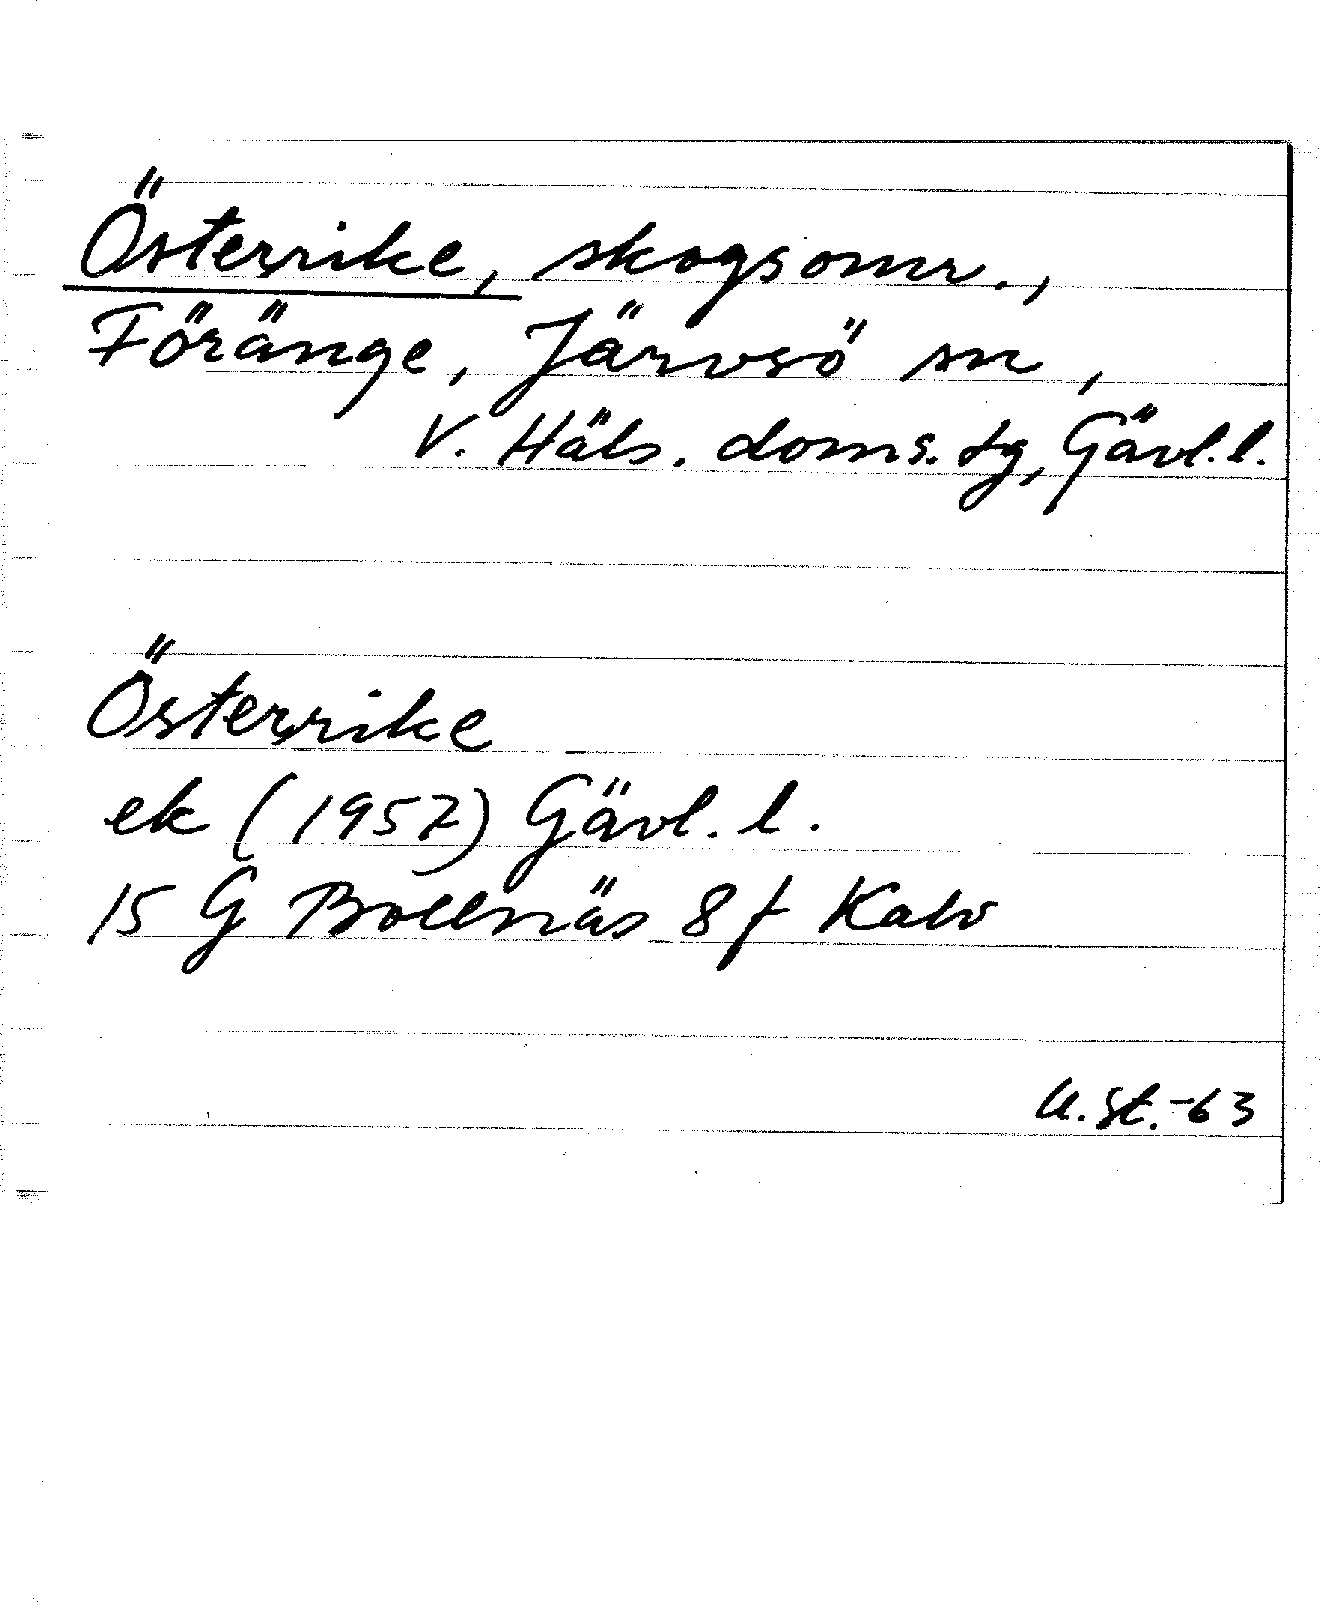 Österrike, skogsomr.,
Föränge, Järvsö sn,
V. Häls. doms. tg, Gävl. l.
Österrike
ek (1957) Gävl. l.
15 G Bollnäs 8 f Kalv
U. St. -63